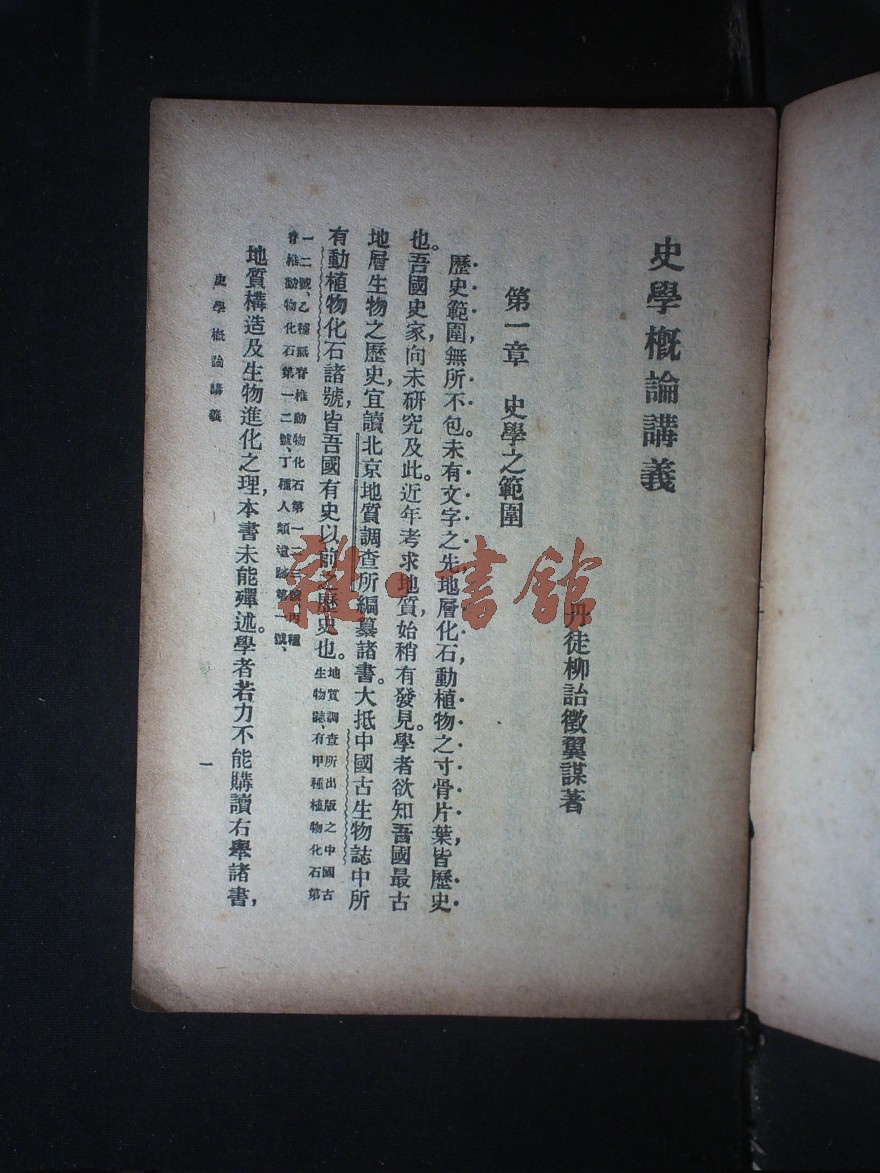 史學概論講義
丹徒柳詒徵翼謀著
第一章　史學之範圍
歷史範圍，無所不包。未有文字之先，地層化石，動植物之寸骨片葉，皆歷史
也。吾國史家，向未研究及此。近年考求地質，始稍有發見。學者欲知吾國最古
地層生物之歷史，宜讀北京地質調查所編纂諸書。大抵中國古生物誌中所
有動植物化石諸號，皆吾國有史以前之歷史也。
地質調查所出版之中國古
生物誌、有甲種植物化石第
一二號、乙種無脊椎動物化石第一二三號、丙種
脊椎動物化石第一二號、丁種人類遺跡第一號、
地質構造及生物進化之理，本書未能殫述。學者若力不能購讀右舉諸書，
史學概論講義
一
雜·書館